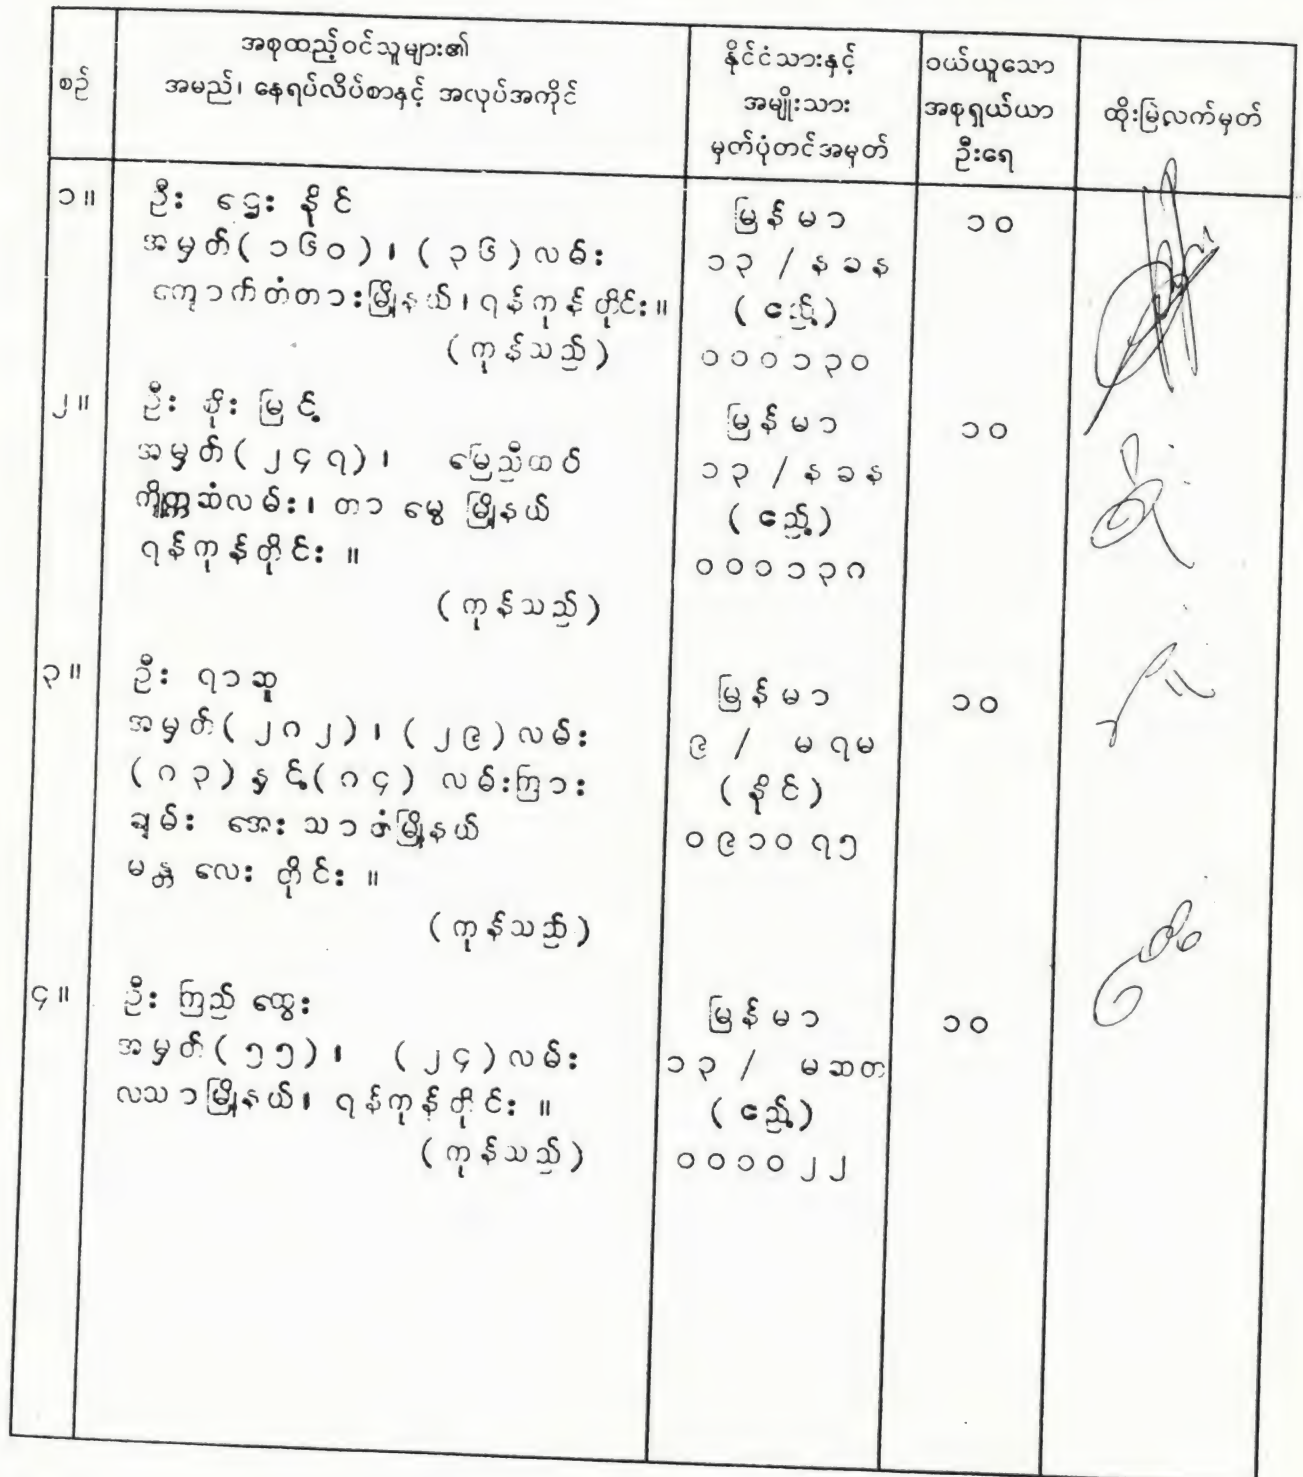 စဉ်
အစုထည့်ဝင်သူများ၏
အမည်၊ နေရပ်လိပ်စာနှင့် အလုပ်အကိုင်
နိုင်ငံသားနှင့်
အမျိုးသား
မှတ်ပုံတင်အမှတ်
ဝယ်ယူသော
အစုရှယ်ယာ
ဦးရေ
ထိုးမြဲလက်မှတ်
၁။
ဦး ဌေး နိုင်
အမှတ်(၁၆၀)၊ (၃၆)လမ်း
ကျောက်တံတားမြို့နယ်၊ ရန်ကုန်တိုင်း။
(ကုန်သည်)
မြန်မာ
၁၃ / နခန
(ဧည့်)
၀၀၀၁၃၀
၁၀
၂။
ဦး စိုး မြင့်
အမှတ်(၂၄၇)၊ မြေညီထပ်
ကျိုက္ကဆံလမ်း၊ တာမွေမြို့နယ်
ရန်ကုန်တိုင်း ။
(ကုန်သည်)
မြန်မာ
၁၃ / နခန
(ဧည့်)
၀၀၀၁၃၈
၁၀
၃။
ဦး ရာဆူ
အမှတ်(၂၈၂)၊ (၂၉)လမ်း
(၈၃)နှင့်(၈၄) လမ်းကြား
ချမ်းအေးသာဇံမြို့နယ်
မန္တလေးတိုင်း ။
(ကုန်သည်)
မြန်မာ
၉ / မရမ
(နိုင်)
၀၉၁၀၇၅
၁၀
၄။
ဦး ကြည် ထွေး
အမှတ်(၅၅)၊ (၂၄)လမ်း
လသာမြို့နယ်၊ ရန်ကုန်တိုင်း ။
(ကုန်သည်)
မြန်မာ
၁၃ / မဆတ
(ဧည့်)
၀၀၁၀၂၂
၁၀